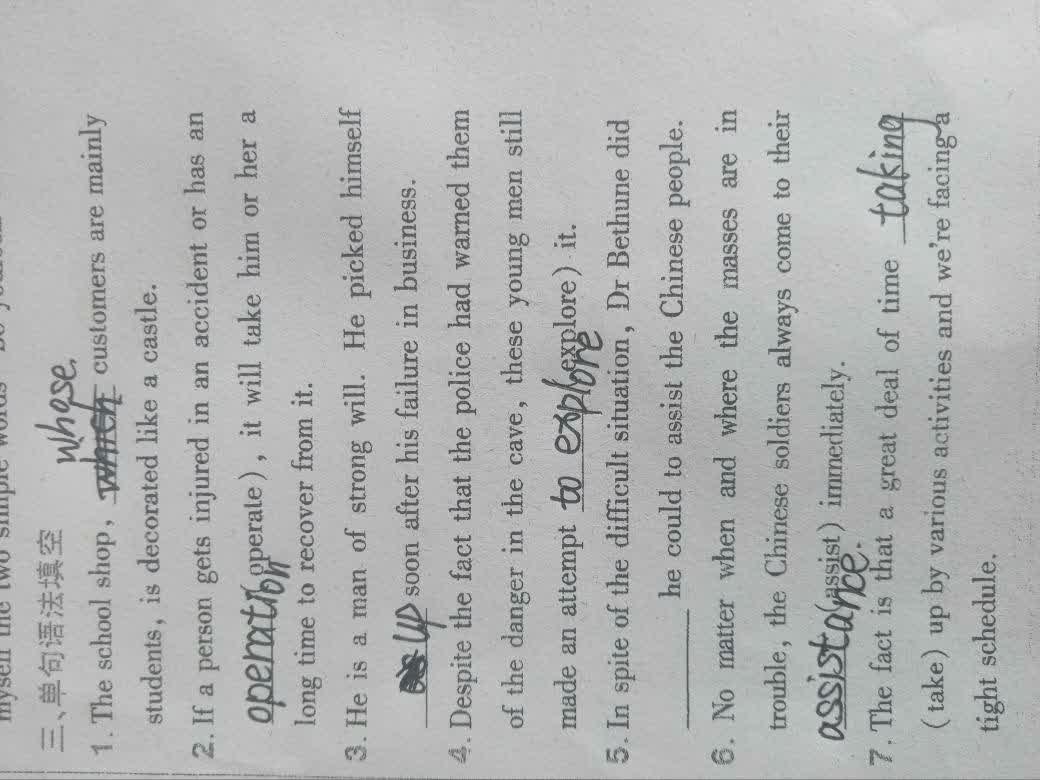 myself the two simple words
三、单句语法填空
whose.
1. The school shop, which customers are mainly
students, is decorated like a castle.
2. If a person gets injured in an accident or has an
operation (operate), it will take him or her a
long time to recover from it.
3. He is a man of strong will. He picked himself
up soon after his failure in business.
4. Despite the fact that the police had warned them
of the danger in the cave, these young men still
made an attempt to explore (explore) it.
5. In spite of the difficult situation, Dr Bethune did
he could to assist the Chinese people.
6. No matter when and where the masses are in
trouble, the Chinese soldiers always come to their
assistance. (assist) immediately.
7. The fact is that a great deal of time taking
(take) up by various activities and we're facing a
tight schedule.